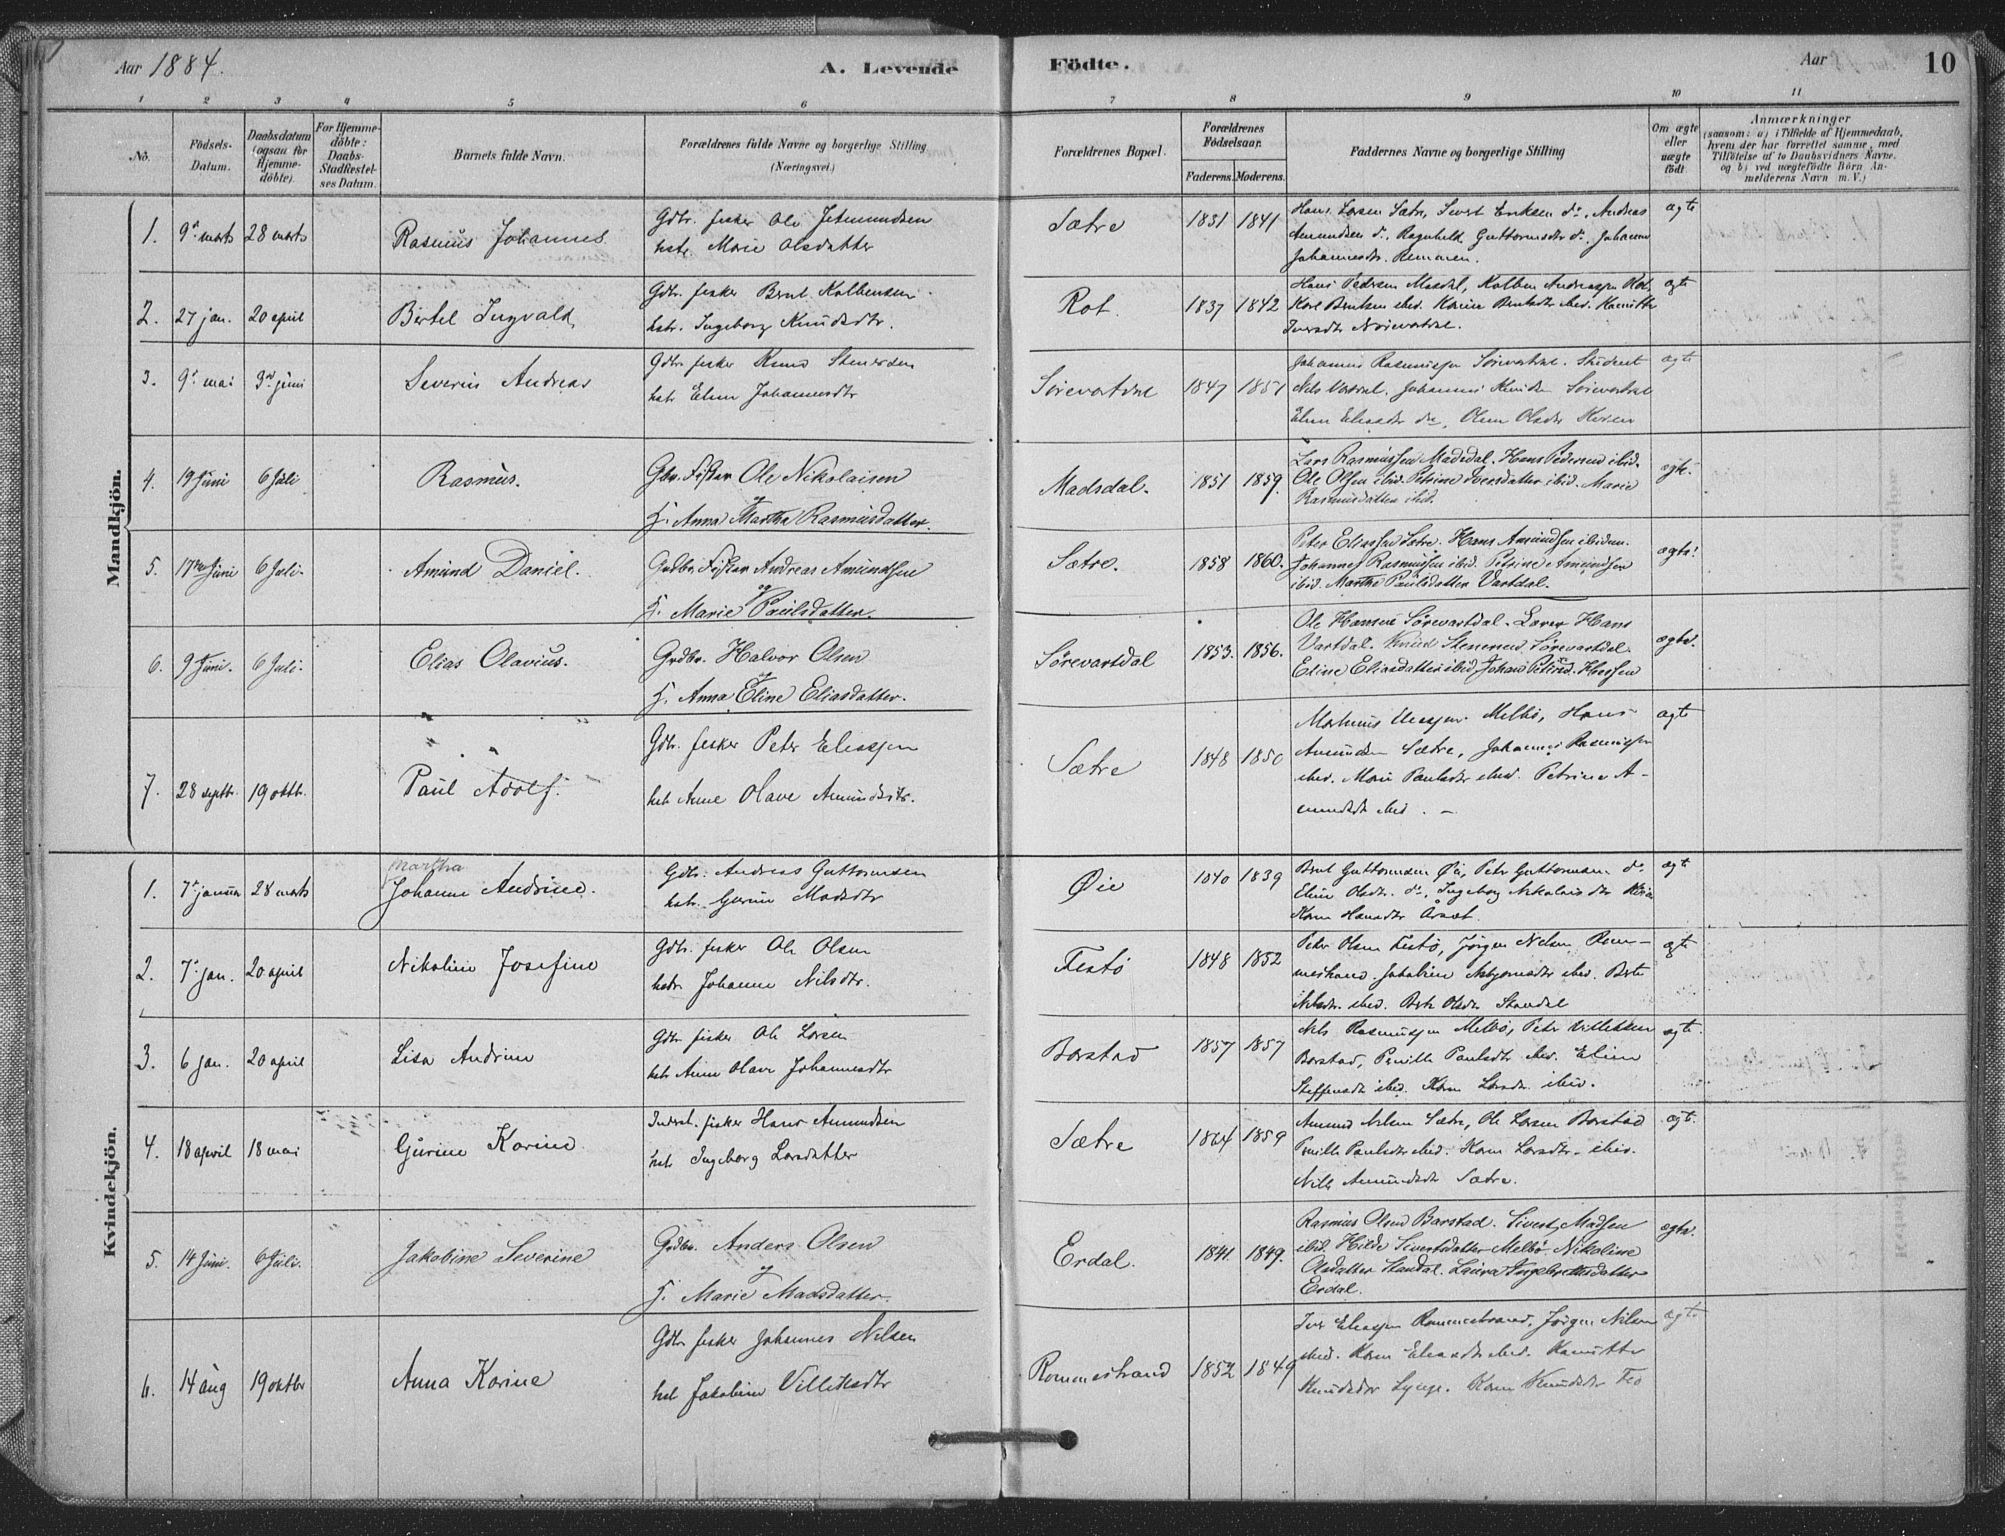 Aar 1884.
A. Levende
Födte.
Aar
10
1 2 3 4 5 6 7 8 9 10 11
No.
Födsels-Datum.
Daabsdatum (ogsaa for Hjemme-döbte).
For Hjemme-döbte: Daabs-Stadfæstel-ses Datum.
Barnets fulde Navn.
Forældrenes fulde Navne og borgerlige Stilling (Næringsvei.)
Forældrenes Bopæl.
Forældrenes Födselsaar.
Faderens. Moderens.
Faddernes Navne og borgerlige Stilling
Om ægte eller uægte födt
Anmærkninger
(saasom: a) i Tilfælde af Hjemmedaab,
hvem der har forrettet samme, med
Tilföielse af to Daabsvidners Navne,
og b) ved uægtefödte Börn An-
melderens Navn m. V.)
Mandkjön.
1. 9de marts 28 marts Rasmus Johannes
Gdbr. fisker Ole Jetmundsen
hstr. Marie Olsdatter
Sætre 1831 1841
Hans Larsen Sætre, Sivert Eriksen do. Andreas
Amundsen do. Ragnhild Guttormsdtr do. Johanne
Johannesdtr. Remmen.
ægte
2. 27 jan. 20 april Bertel Ingvald
Gdbr. fisker Bernt Kolbensen
hstr. Ingeborg Knudsdtr.
Rot. 1837 1842
Hans Pedersen Masdal, Kolben Andreassen Rot,
Karl Berntsen ibid. Karine Berntsdtr ibid.
Iversdtr Nørevartdal.
ægte
3. 9de mai 3die juni Severin Andreas
Gdbr fisker Knud Stenersen
hstr Eline Johannesdtr
Sørevartdal 1847 1851
Johannes Rasmussen Sørevartdal. Student
Nils Vartdal. Johannes Knudsen Sørevartdal
Eline Eliasdtr do, Oline Olsdtr
ægte
4. 19 Juni 6 Juli Rasmus.
Gbr. Fisker Ole Nikolaisen
og
H. Anna Martha Rasmusdatter.
Madsdal. 1851 1859.
Lars Rasmussen Madsdal. Hans Pedersen ibid.
Ole Olsen ibid. Petrine Iversdatter ibid. Marie
Rasmusdatter ibid.
ægte.
5. 17de Juni 6 Juli. Amund Daniel.
Gadbr. Fisker Andreas Amundsen
og
H. Marie Paulsdatter.
Sætre. 1858 1860.
Peter Eliassen Sætre. Hans Amundsen ibidem.
Johannes Rasmussen ibid. Petrine Amundsen
ibid. Marthe Paulsdatter Vartdal.
ægte.
6. 9 Juni. 6 Juli. Elias Olavius.
Grdbr. Halvor Olsen
og
H. Anna Eline Eliasdatter.
Sørevartdal 1853. 1856.
Ole Hansen Sørevartdal. Lærer Hans
Vartdal. Knud Stenersen Sørevartdal.
Eline Eliasdatter ibid. Johan
ægte.
7. 28 septbr. 19 oktb. Paul Adolf.
Gdbr. fisker Peter Eliassen
hstr Anne Olave Amundsdtr.
Sætre 1848 1850
Melbö, Hans
Amundsen Sætre, Johannes Rasmussen
ibid. Marie Paulsdtr ibid. Petrine A-
mundsdtr ibid. –
ægte
Kvindekjön.
1. 7de januar 28 marts Martha
Johanne Andrine.
Gdbr. Andreas Guttormsen
hstr. Gurine Madsdtr
Øie 1840 1839
Bernt Guttormsen Øie, Peter Guttormsen do.
Eline Olsdtr. do. Ingeborg Nikolaisdtr
Karen Hansdtr Aarsæt.
ægte
2. 7de jan. 20 april Nikoline Josefine
Gdbr. fisker Ole Olsen
hstr. Johanne Nilsdtr.
Festö 1848 1852
Peter Olsen Festö, Jørgen Nilsen Rom-
mestrand. Jakobine Asbjørnsdtr ibid. Berte
Nilsdtr. ibid. Berte Olsdtr Standal
ægte
3. 6 jan. 20 april Lisa Andrine
Gdbr fisker Ole Larsen
hstr Anne Olave Johannesdtr
Barstad 1857 1857
Nils Rasmussen Melbö, Peter Villiksen
Barstad, Pernille Paulsdtr ibid. Eline
Steffensdtr ibid. Karen Larsdtr. ibid.
ægte.
4. 18 april 18 mai Gurine Karine
Inderst. fisker Hans Amundsen
hstr Ingeborg Larsdatter
Sætre 1864 1859
Amund Nilsen Sætre, Ole Larsen Barstad
Pernille Paulsdtr ibid. Karen Larsdtr. ibid.
Nille Amundsdtr Sætre.
ægt.
5. 14 Juni. 6 Juli. Jakobine Severine
Grdbr. Anders Olsen
og
H. Marie Madsdatter.
Erdal. 1841. 1849.
Rasmus Olsen Barstad. Sivert Madsen
ibid. Hilde Sivertsdatter Melbö. Nikoline
Olsdatter Standal. Laura Ingebrethsdatter
Erdal.
ægte.
6. 14 aug 19 oktbr Anna Karine
Gdbr fisker Johannes Nilsen
hstr Jakobine Villiksdtr
Rommestrand 1852 1849
Iver Eliassen Rommestrand, Jørgen Nilsen
ibid. Karen Eliasdtr ibid.
Knudsdtr Lynge. Karen Knudsdtr
ægte